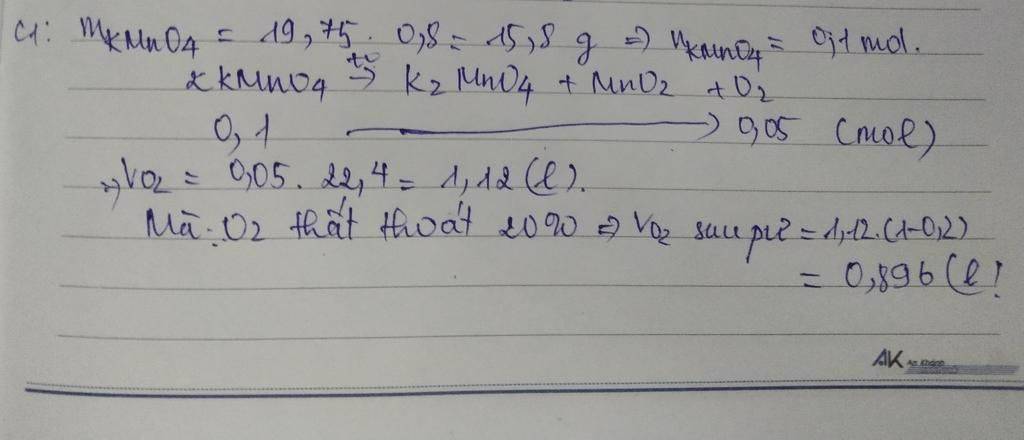 C1: mKMnO4 = 19,75. 0,8 = 15,8 g => nKMnO4 = 0,1 mol.
2KMnO4 t°→ K2MnO4 + MnO2 + O2
0,1 → 0,05 (mol)
=> VO2 = 0,05. 22,4 = 1,12 (l).
Mà: O2 thất thoát 20% => VO2 sau pứ = 1,12.(1-0,2)
= 0,896 (l)
AK An Khánh